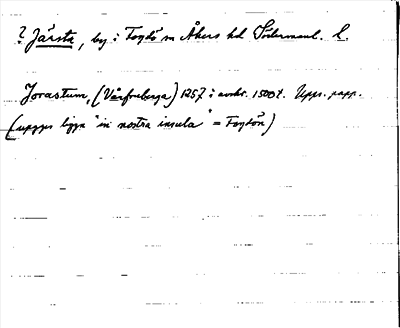 ? Järsta, by i Fogdö sn Åkers hd Södermanl. l.
Jorastum, (Vårfruberga) 1257 i avskr. 1500 t. Upps. papp.
(uppges ligga "in nostra insula" = Fogdön)